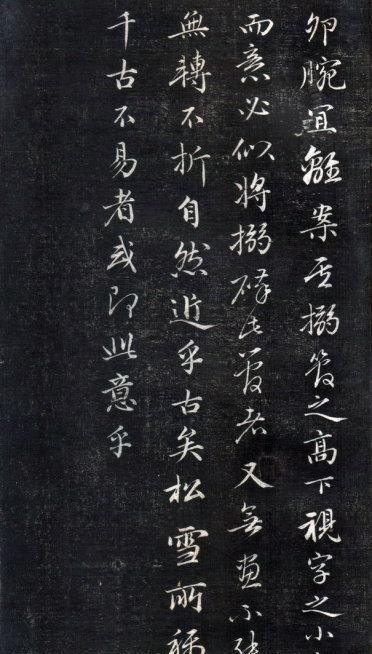 腕宜離案其搦管之高下視字之小
而意必似將搦碎此管者又無畫不
無轉不折自然近乎古矣松雪所稱
千古不易者或即此意乎